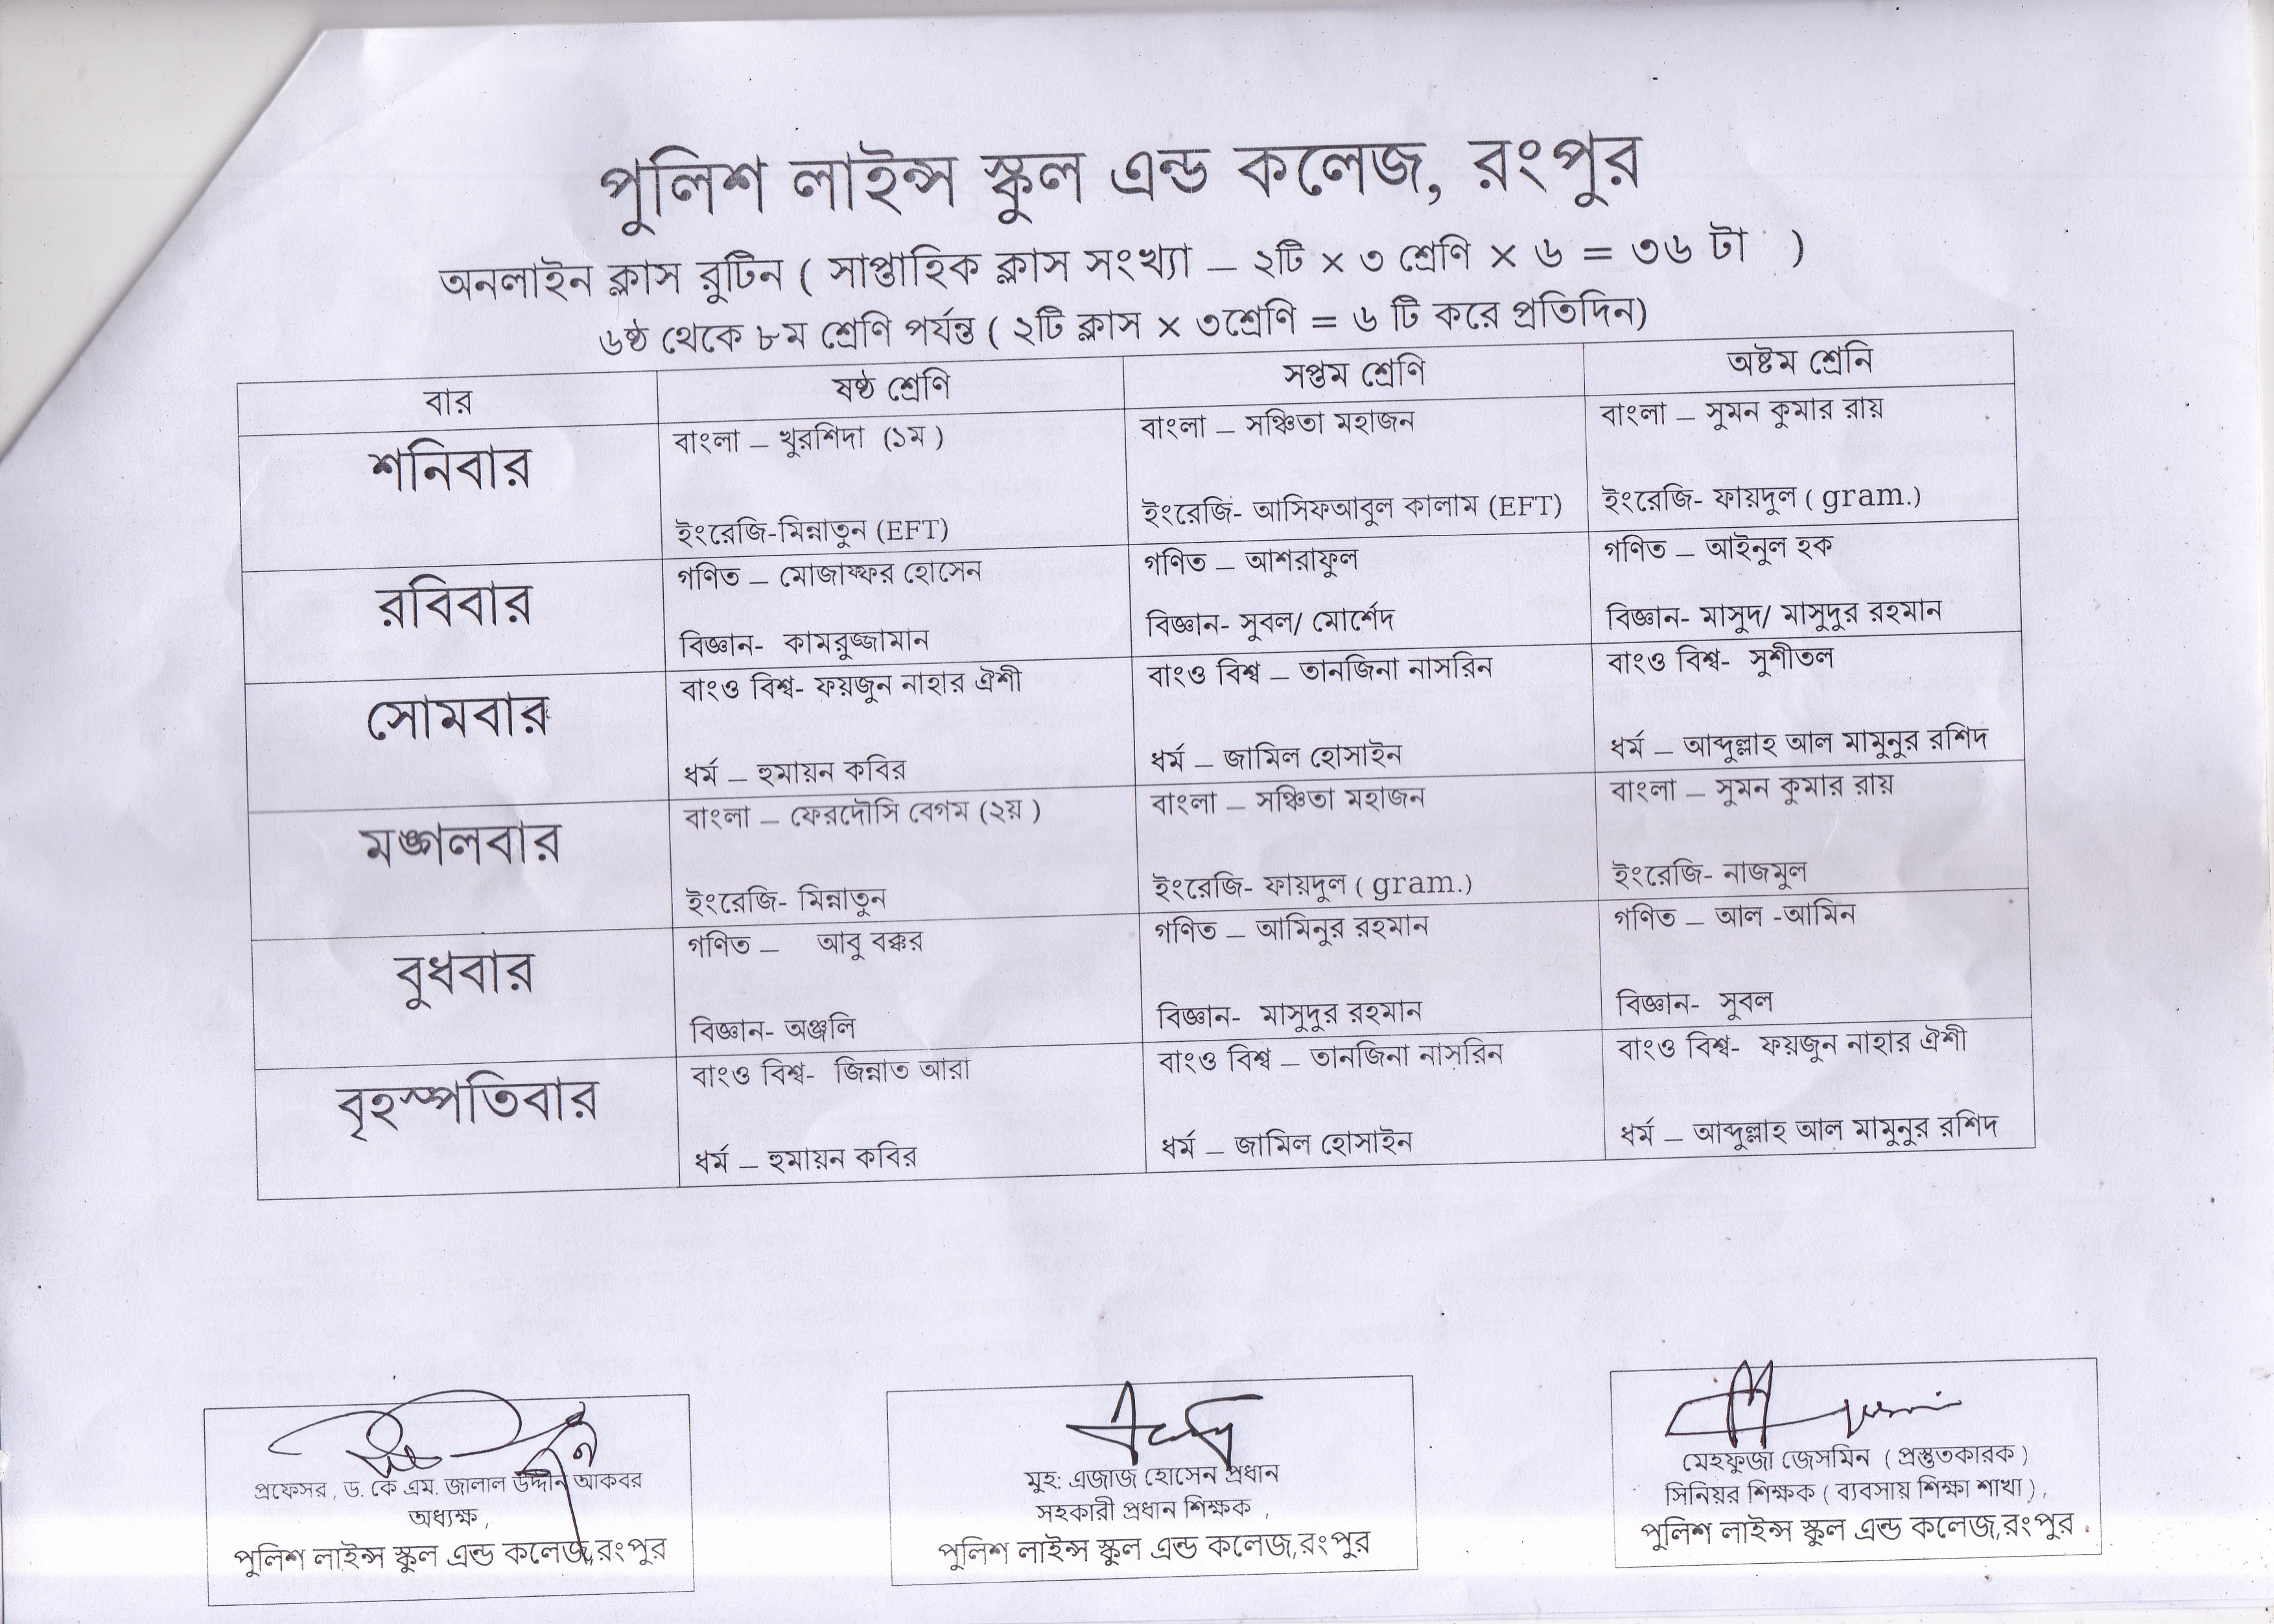 পুলিশ লাইন্স স্কুল এন্ড কলেজ, রংপুর
অনলাইন ক্লাস রুটিন ( সাপ্তাহিক ক্লাস সংখ্যা – ২টি × ৩ শ্রেণি × ৬ = ৩৬ টা )
৬ষ্ঠ থেকে ৮ম শ্রেণি পর্যন্ত ( ২টি ক্লাস × ৩শ্রেণি = ৬ টি করে প্রতিদিন)
বার ষষ্ঠ শ্রেণি সপ্তম শ্রেণি অষ্টম শ্রেনি
শনিবার
বাংলা – খুরশিদা (১ম )
ইংরেজি-মিন্নাতুন (EFT)
বাংলা – সঞ্চিতা মহাজন
ইংরেজি- আসিফআবুল কালাম (EFT)
বাংলা – সুমন কুমার রায়
ইংরেজি- ফায়দুল ( gram.)
রবিবার
গণিত – মোজাফ্ফর হোসেন
বিজ্ঞান- কামরুজ্জামান
গণিত – আশরাফুল
বিজ্ঞান- সুবল/ মোর্শেদ
গণিত – আইনুল হক
বিজ্ঞান- মাসুদ/ মাসুদুর রহমান
সোমবার
বাংও বিশ্ব- ফয়জুন নাহার ঐশী
ধর্ম – হুমায়ন কবির
বাংও বিশ্ব – তানজিনা নাসরিন
ধর্ম – জামিল হোসাইন
বাংও বিশ্ব- সুশীতল
ধর্ম – আব্দুল্লাহ আল মামুনুর রশিদ
মঙ্গলবার
বাংলা – ফেরদৌসি বেগম (২য় )
ইংরেজি- মিন্নাতুন
বাংলা – সঞ্চিতা মহাজন
ইংরেজি- ফায়দুল ( gram.)
বাংলা – সুমন কুমার রায়
ইংরেজি- নাজমুল
বুধবার
গণিত – আবু বক্কর
বিজ্ঞান- অঞ্জলি
গণিত – আমিনুর রহমান
বিজ্ঞান- মাসুদুর রহমান
গণিত – আল -আমিন
বিজ্ঞান- সুবল
বৃহস্পতিবার
বাংও বিশ্ব- জিন্নাত আরা
ধর্ম – হুমায়ন কবির
বাংও বিশ্ব – তানজিনা নাসরিন
ধর্ম – জামিল হোসাইন
বাংও বিশ্ব- ফয়জুন নাহার ঐশী
ধর্ম – আব্দুল্লাহ আল মামুনুর রশিদ
প্রফেসর , ড. কে এম. জালাল উদ্দীন আকবর
অধ্যক্ষ ,
পুলিশ লাইন্স স্কুল এন্ড কলেজ,রংপুর
মুহ: এজাজ হোসেন প্রধান
সহকারী প্রধান শিক্ষক ,
পুলিশ লাইন্স স্কুল এন্ড কলেজ,রংপুর
মেহফুজা জেসমিন ( প্রস্তুতকারক )
সিনিয়র শিক্ষক ( ব্যবসায় শিক্ষা শাখা ) ,
পুলিশ লাইন্স স্কুল এন্ড কলেজ,রংপুর .